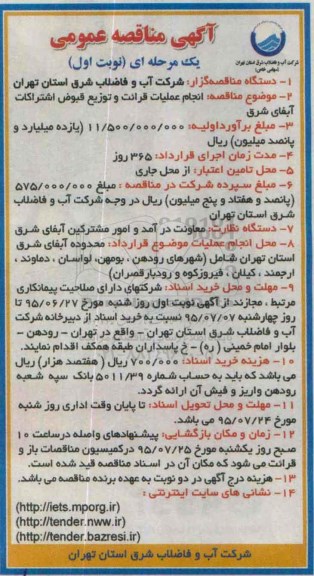 آگهی مناقصه عمومی
یک مرحله ای (نوبت اول)
شرکت آب و فاضلاب شرق استان تهران
(سهامی خاص)
۱- دستگاه مناقصه‌گزار: شرکت آب و فاضلاب شرق استان تهران
۲- موضوع مناقصه: انجام عملیات قرائت و توزیع قبوض اشتراکات
آبفای شرق
۳- مبلغ برآورداولیه: ۱۱/۵۰۰/۰۰۰/۰۰۰ (یازده میلیارد و
پانصد میلیون) ریال
۴- مدت زمان اجرای قرارداد: ۳۶۵ روز
۵- محل تامین اعتبار: از محل جاری
۶- مبلغ سپرده شرکت در مناقصه : مبلغ ۵۷۵/۰۰۰/۰۰۰
(پانصد و هفتاد و پنج میلیون) ریال در وجه شرکت آب و فاضلاب
شرق استان تهران
۷- دستگاه نظارت: معاونت در آمد و امور مشترکین آبفای شرق
۸- محل انجام عملیات موضوع قرارداد: محدوده آبفای شرق
استان تهران شامل (شهرهای رودهن ، بومهن، لواسان ، دماوند ،
ارجمند ، کیلان ، فیروزکوه و رودبارقصران)
۹- مهلت و محل خرید اسناد: شرکتهای دارای صلاحیت پیمانکاری
مرتبط ، مجازند از آگهی نوبت اول روز شنبه مورخ ۹۵/۰۶/۲۷ تا
روز چهارشنبه ۹۵/۰۷/۰۷ نسبت به خرید اسناد از دبیرخانه شرکت
آب و فاضلاب شرق استان تهران - واقع در تهران - رودهن -
بلوار امام خمینی (ره) - خ پاسداران طبقه همکف اقدام نمایند.
۱۰- هزینه خرید اسناد: ۷۰۰/۰۰۰ ریال ( هفتصد هزار) ریال
می باشد که باید به حساب شماره ۵۰۱۱/۳۹ بانک سپه شعبه
رودهن واریز و فیش آن ارائه گردد.
۱۱- مهلت و محل تحویل اسناد: تا پایان وقت اداری روز شنبه
مورخ ۹۵/۰۷/۲۴ می باشد.
۱۲- زمان و مکان بازگشایی: پیشنهادهای واصله درساعت ۱۰
صبح روز یکشنبه مورخ ۹۵/۰۷/۲۵ درکمیسیون مناقصات باز و
قرائت می شود که مکان آن در اسناد مناقصه قید شده است.
۱۳- هزینه درج آگهی در دو نوبت به عهده برنده مناقصه می باشد.
۱۴- نشانی های سایت اینترنتی :
(http://iets.mporg.ir)
(http://tender.nww.ir)
(http://tender.bazresi.ir)
شرکت آب و فاضلاب شرق استان تهران